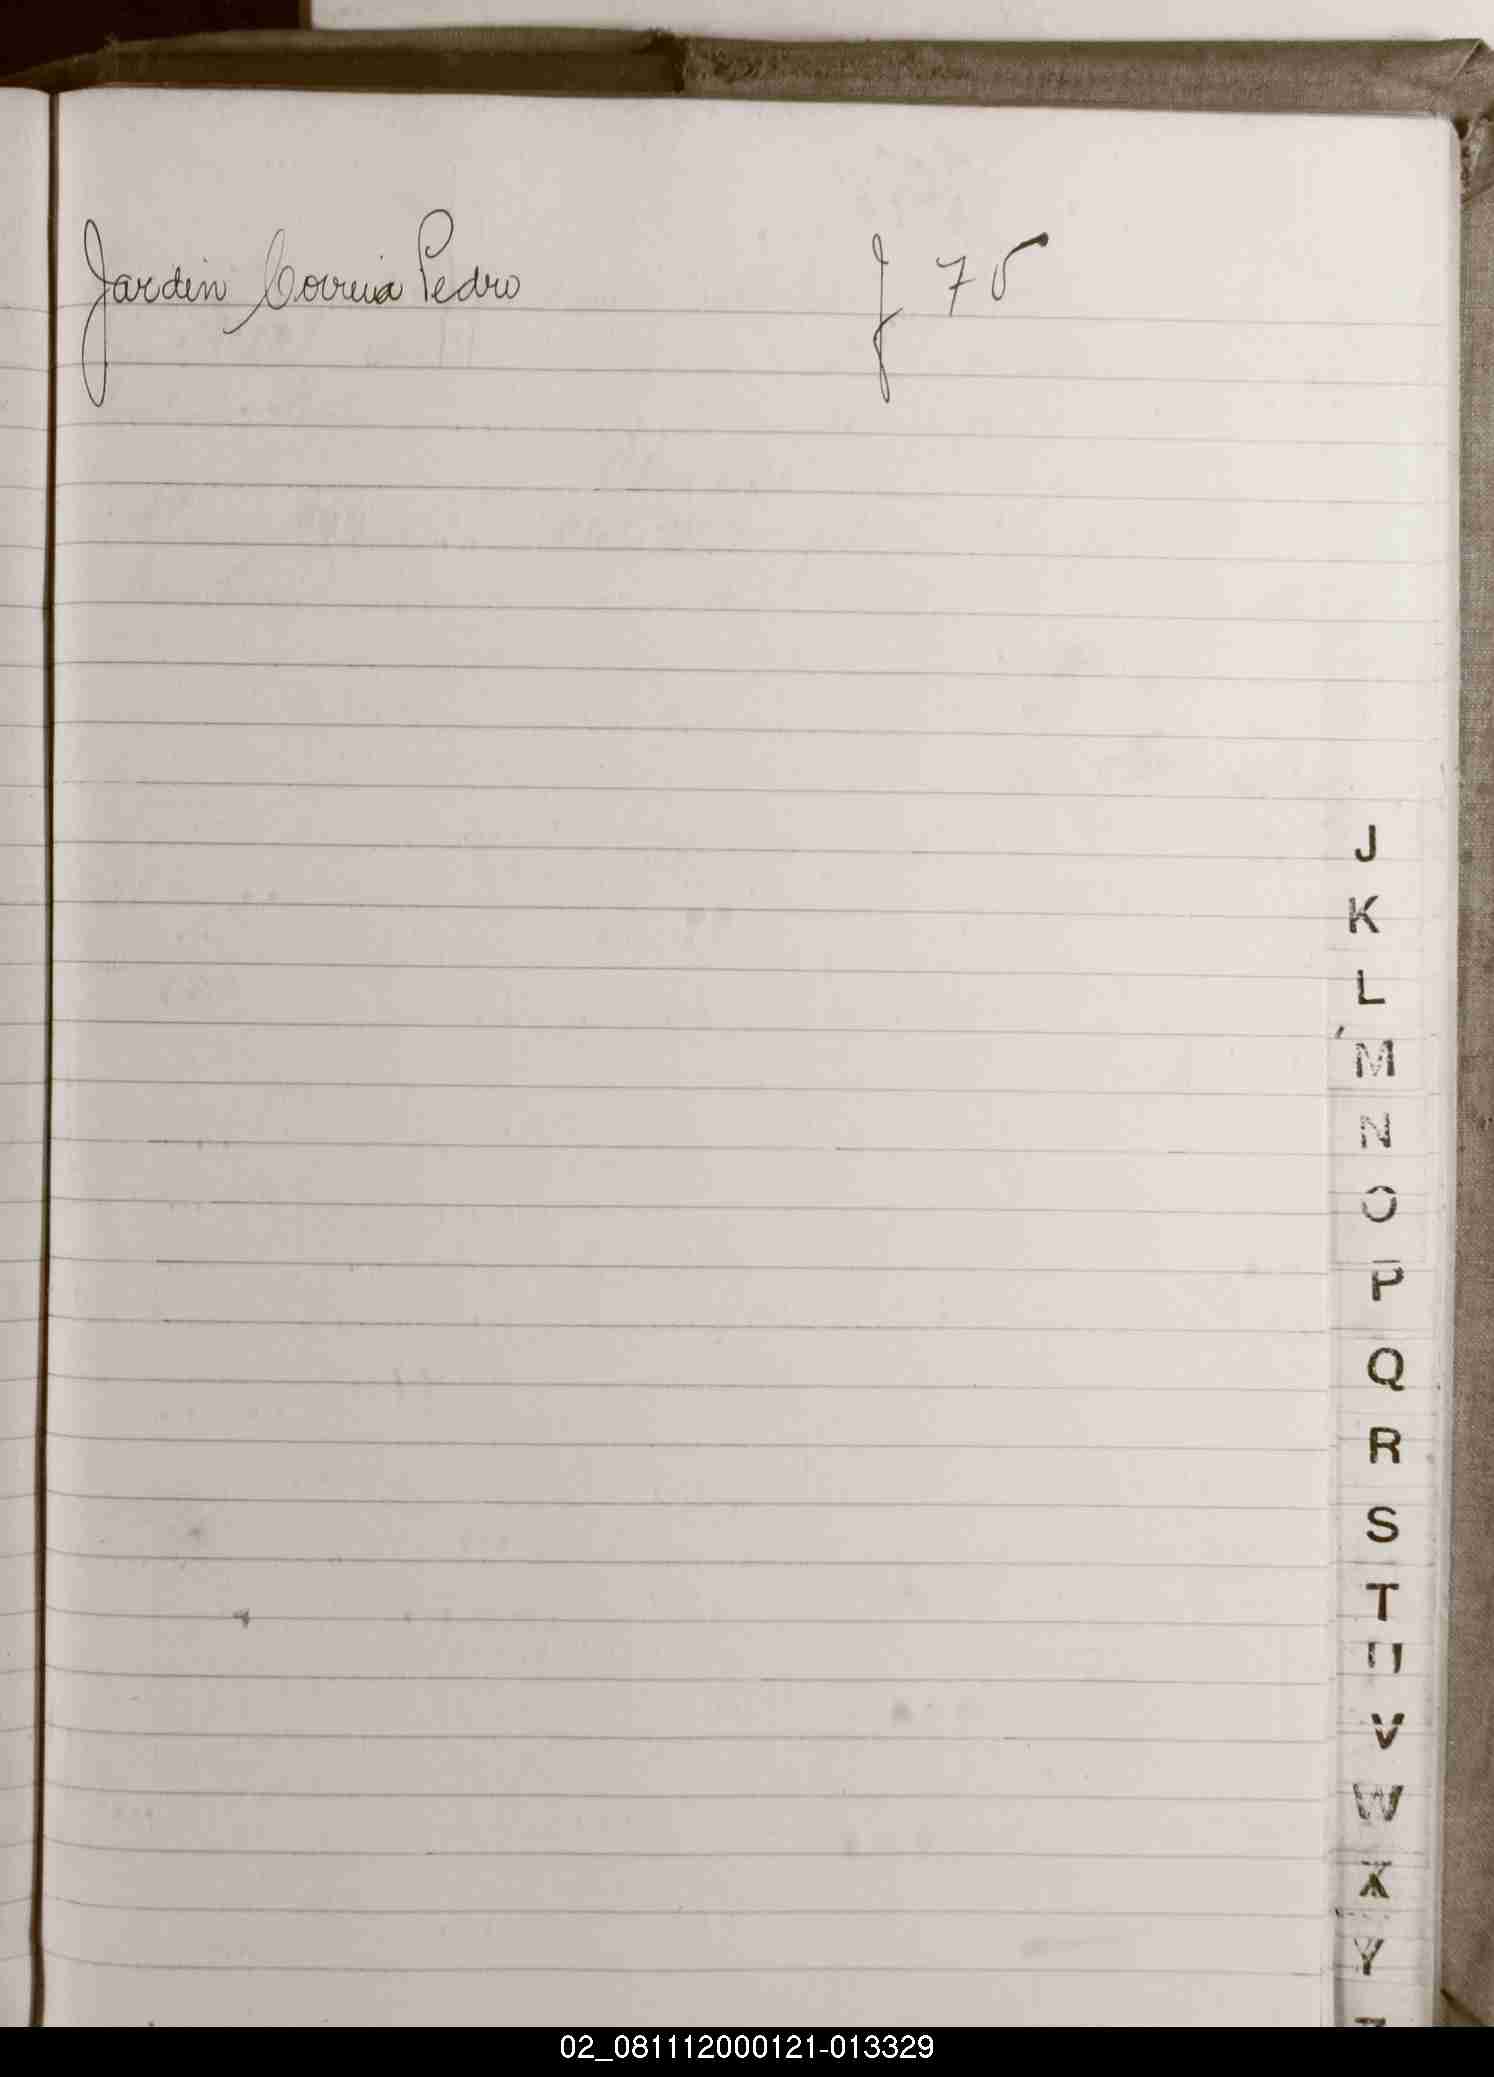 Jardin Correia Pedro f 75
J
K
L
M
N
O
P
Q
R
S
T
U
V
W
X
Y
02_081112000121-013329